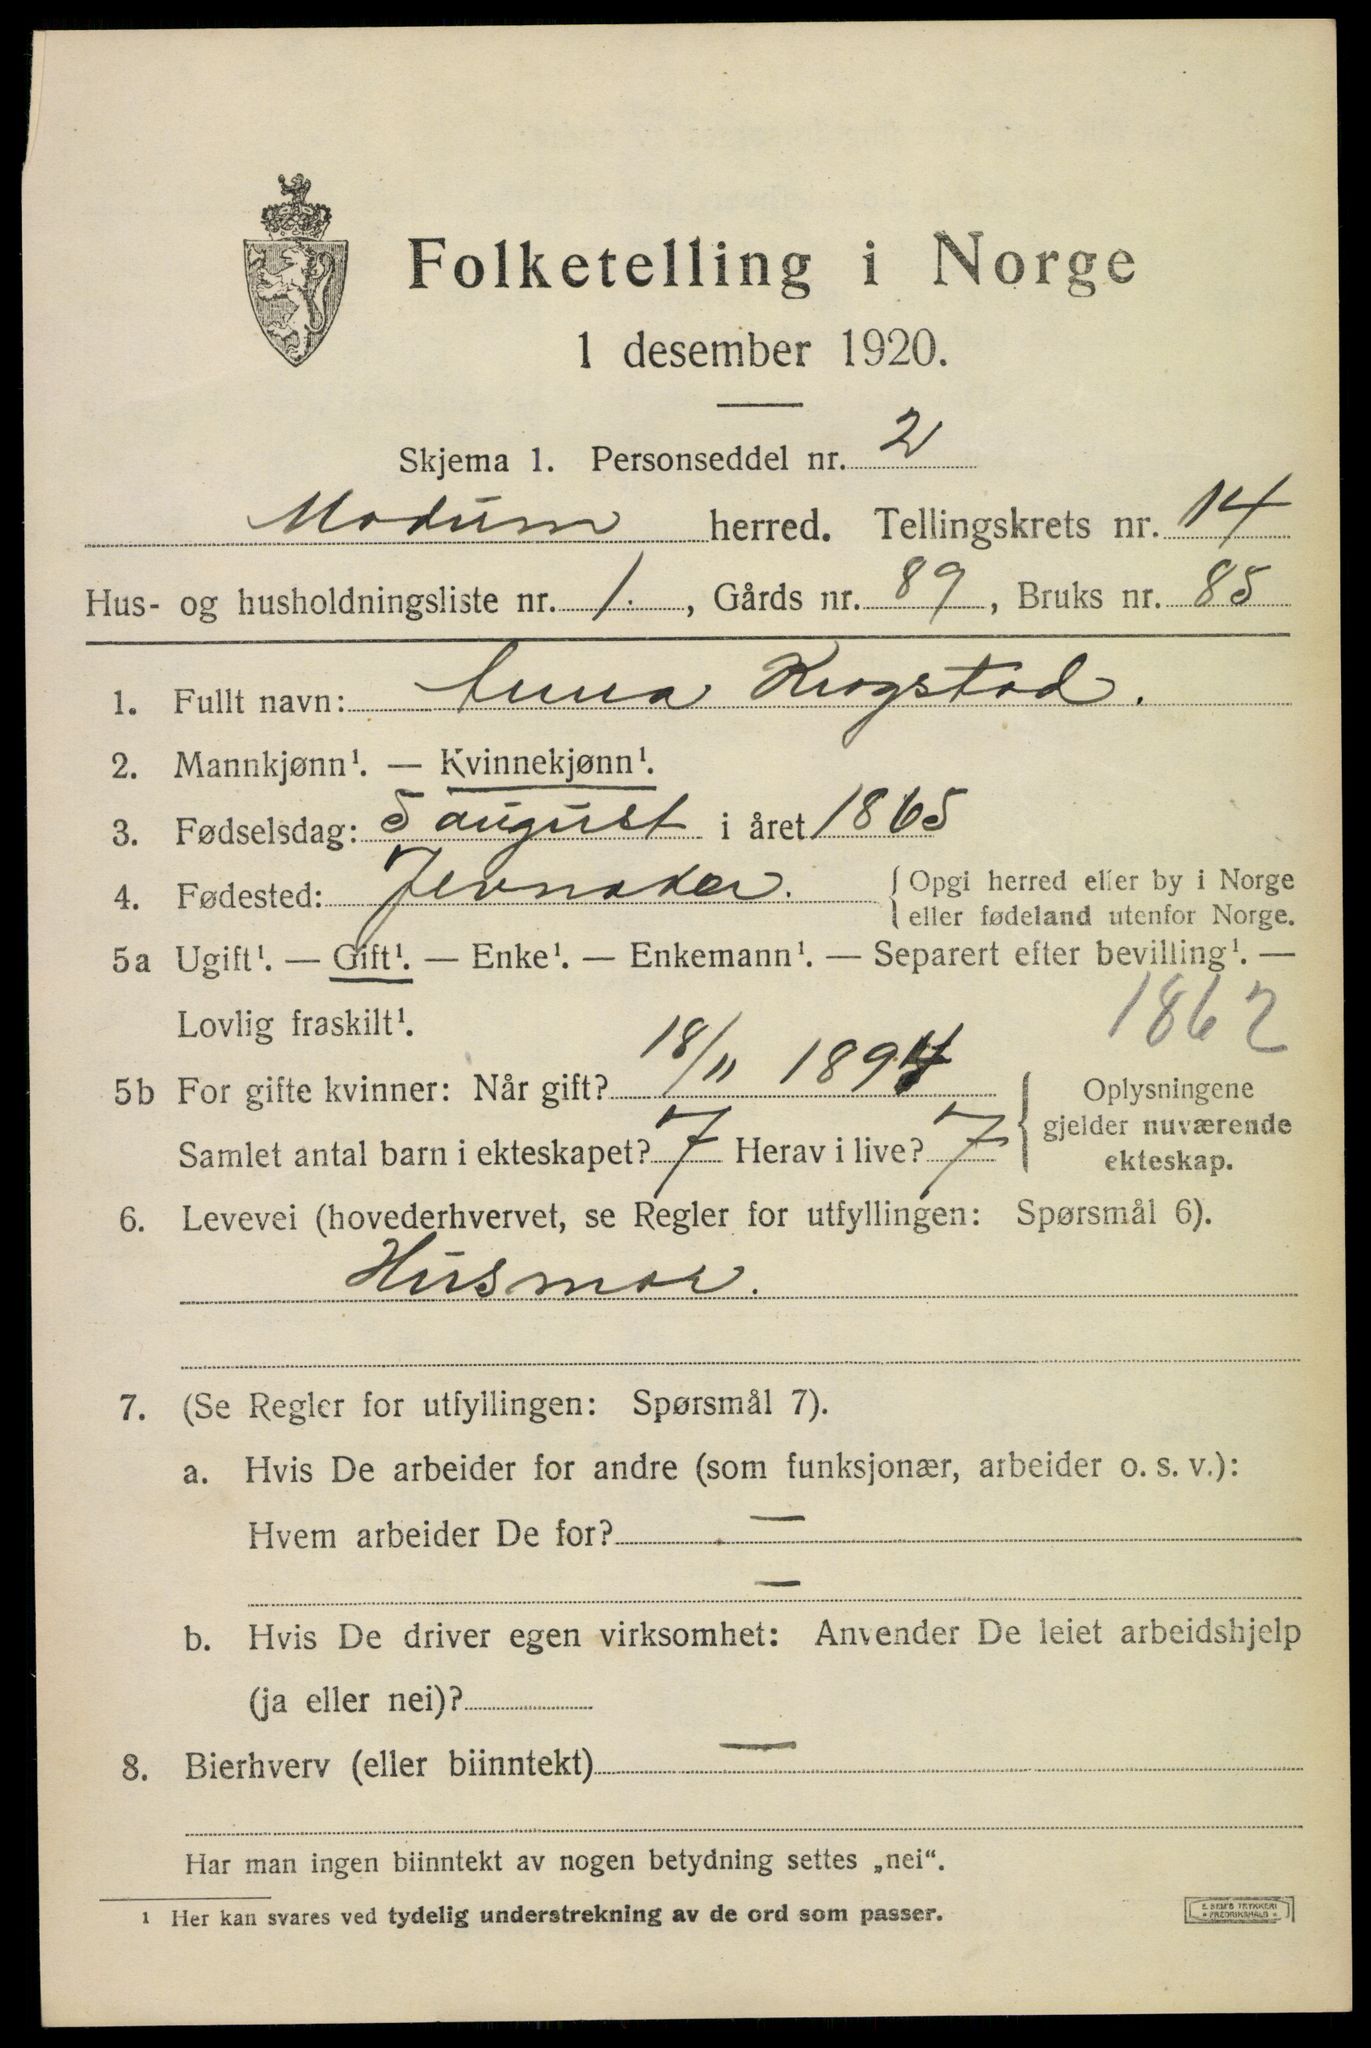 Folketelling i Norge
1 desember 1920.
Skjema 1. Personseddel nr. 2
Modum herred. Tellingskrets nr. 14
Hus- og husholdningsliste nr. 1., Gårds nr. 89, Bruks nr. 85
1. Fullt navn: Anna Krogstad.
2. Mannkjønn¹. — Kvinnekjønn¹.
3. Fødselsdag: 5 august i året 1865
4. Fødested: Jevnaker. {Opgi herred eller by i Norge
eller fødeland utenfor Norge.
5a Ugift¹. — Gift¹. — Enke¹. — Enkemann¹. — Separert efter bevilling¹. —
Lovlig fraskilt¹. 1862
5b For gifte kvinner: Når gift? 18/11 1894 { Oplysningene
gjelder nuværende
ekteskap.
Samlet antal barn i ekteskapet? 7 Herav i live? 7
6. Levevei (hovederhvervet, se Regler for utfyllingen: Spørsmål 6).
Husmor.
7. (Se Regler for utfyllingen: Spørsmål 7).
a. Hvis De arbeider for andre (som funksjonær, arbeider o. s. v.):
Hvem arbeider De for? —
—
b. Hvis De driver egen virksomhet: Anvender De leiet arbeidshjelp
(ja eller nei)?
8. Bierhverv (eller biinntekt) —
Har man ingen biinntekt av nogen betydning settes „nei“.
¹ Her kan svares ved tydelig understrekning av de ord som passer.
E. SEM'S TRYKKERI
* FREDRIKSHALD *